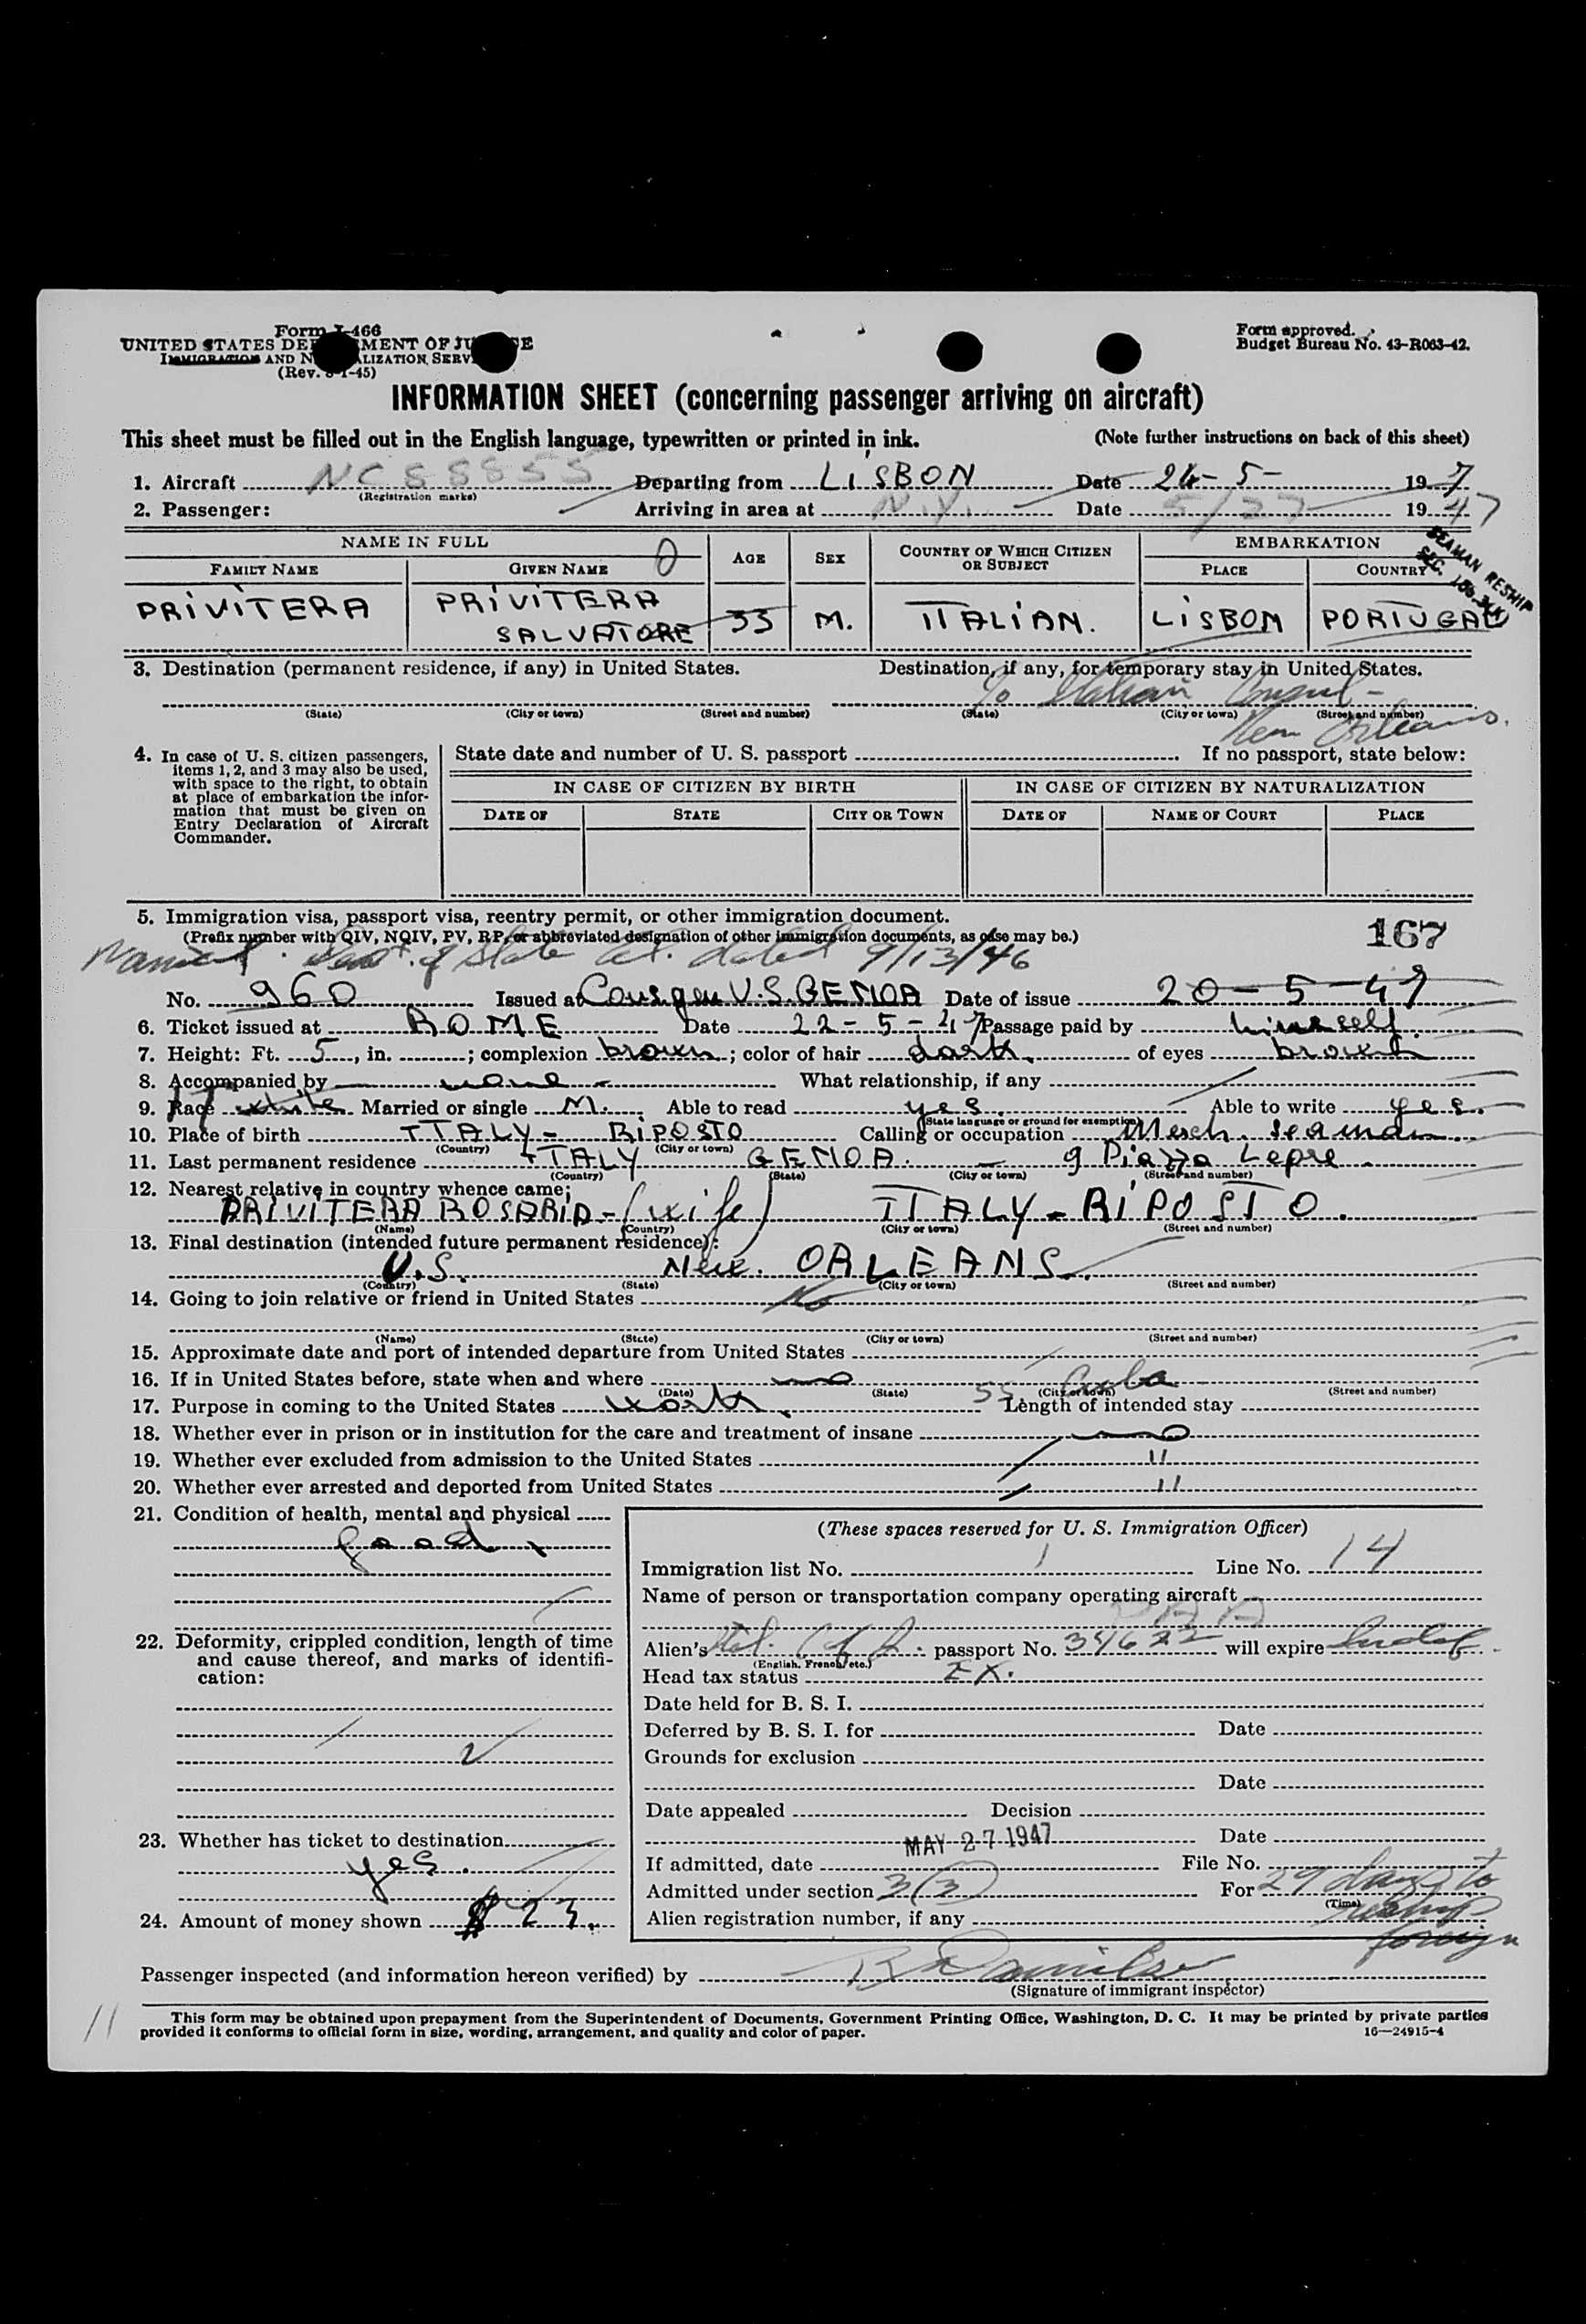 Form I-466
UNITED STATES DEPARTMENT OF JUSTICE
IMMIGRATION AND NATURALIZATION SERVICE
(Rev. 8-1-45)
Form approved.
Budget Bureau No. 43-R063-42.
INFORMATION SHEET (concerning passenger arriving on aircraft)
This sheet must be filled out in the English language, typewritten or printed in ink. (Note further instructions on back of this sheet)
1. Aircraft NC88855 Departing from LISBON Date 24-5- 1947
(Registration marks)
2. Passenger: Arriving in area at N.Y. Date 5/27 1947
NAME IN FULL AGE SEX COUNTRY OF WHICH CITIZEN OR SUBJECT EMBARKATION
FAMILY NAME GIVEN NAME PLACE COUNTRY
SEAMAN RESHIP
PRIVITERA PRIVITERA SALVATORE 33 M. ITALIAN. LISBON PORTUGAL
3. Destination (permanent residence, if any) in United States. Destination, if any, for temporary stay in United States.
c/o Italian Consul -
(State) (City or town) (Street and number) (State) (City or town) (Street and number)
New Orleans.
4. In case of U. S. citizen passengers, items 1, 2, and 3 may also be used, with space to the right, to obtain at place of embarkation the information that must be given on Entry Declaration of Aircraft Commander.
State date and number of U. S. passport If no passport, state below:
IN CASE OF CITIZEN BY BIRTH IN CASE OF CITIZEN BY NATURALIZATION
DATE OF STATE CITY OR TOWN DATE OF NAME OF COURT PLACE
5. Immigration visa, passport visa, reentry permit, or other immigration document.
(Prefix number with QIV, NQIV, PV, RP, or abbreviated designation of other immigration documents, as case may be.)
167
Dept. of State dated 9/13/46
No. 960 Issued at U.S. GENOA Date of issue 20-5-47
6. Ticket issued at ROME Date 22-5-47 Passage paid by himself.
7. Height: Ft. 5, in. ; complexion brown; color of hair dark. of eyes brown
8. Accompanied by none - What relationship, if any
9. Race white Married or single M. Able to read yes. Able to write yes.
(State language or ground for exemption)
10. Place of birth ITALY - RIPOSTO Calling or occupation Merch. seaman
(Country) (City or town)
11. Last permanent residence ITALY GENOA. - 9 Piazza Lepre.
(Country) (State) (City or town) (Street and number)
12. Nearest relative in country whence came;
PRIVITERA ROSARIA - (wife) ITALY - RIPOSTO.
(Name) (Country) (City or town) (Street and number)
13. Final destination (intended future permanent residence):
U.S. New. ORLEANS.
(Country) (State) (City or town) (Street and number)
14. Going to join relative or friend in United States No
(Name) (State) (City or town) (Street and number)
15. Approximate date and port of intended departure from United States
16. If in United States before, state when and where no
(Date) (State) (City or town) (Street and number)
SS
17. Purpose in coming to the United States work. Length of intended stay
18. Whether ever in prison or in institution for the care and treatment of insane no
19. Whether ever excluded from admission to the United States "
20. Whether ever arrested and deported from United States "
21. Condition of health, mental and physical
good.
22. Deformity, crippled condition, length of time and cause thereof, and marks of identification:
23. Whether has ticket to destination
yes.
24. Amount of money shown $ 23.
(These spaces reserved for U. S. Immigration Officer)
Immigration list No. 1 Line No. 14
Name of person or transportation company operating aircraft
PAA
Alien's Ital. passport No. 34622 will expire Indef.
(English, French, etc.)
Head tax status EX.
Date held for B. S. I.
Deferred by B. S. I. for Date
Grounds for exclusion
Date
Date appealed Decision
Date
If admitted, date MAY 27 1947 File No.
Admitted under section 3(3) For 29 days to
(Time)
reship
foreign
Alien registration number, if any
Passenger inspected (and information hereon verified) by
(Signature of immigrant inspector)
11
This form may be obtained upon prepayment from the Superintendent of Documents, Government Printing Office, Washington, D. C. It may be printed by private parties
provided it conforms to official form in size, wording, arrangement, and quality and color of paper. 16—24915-4